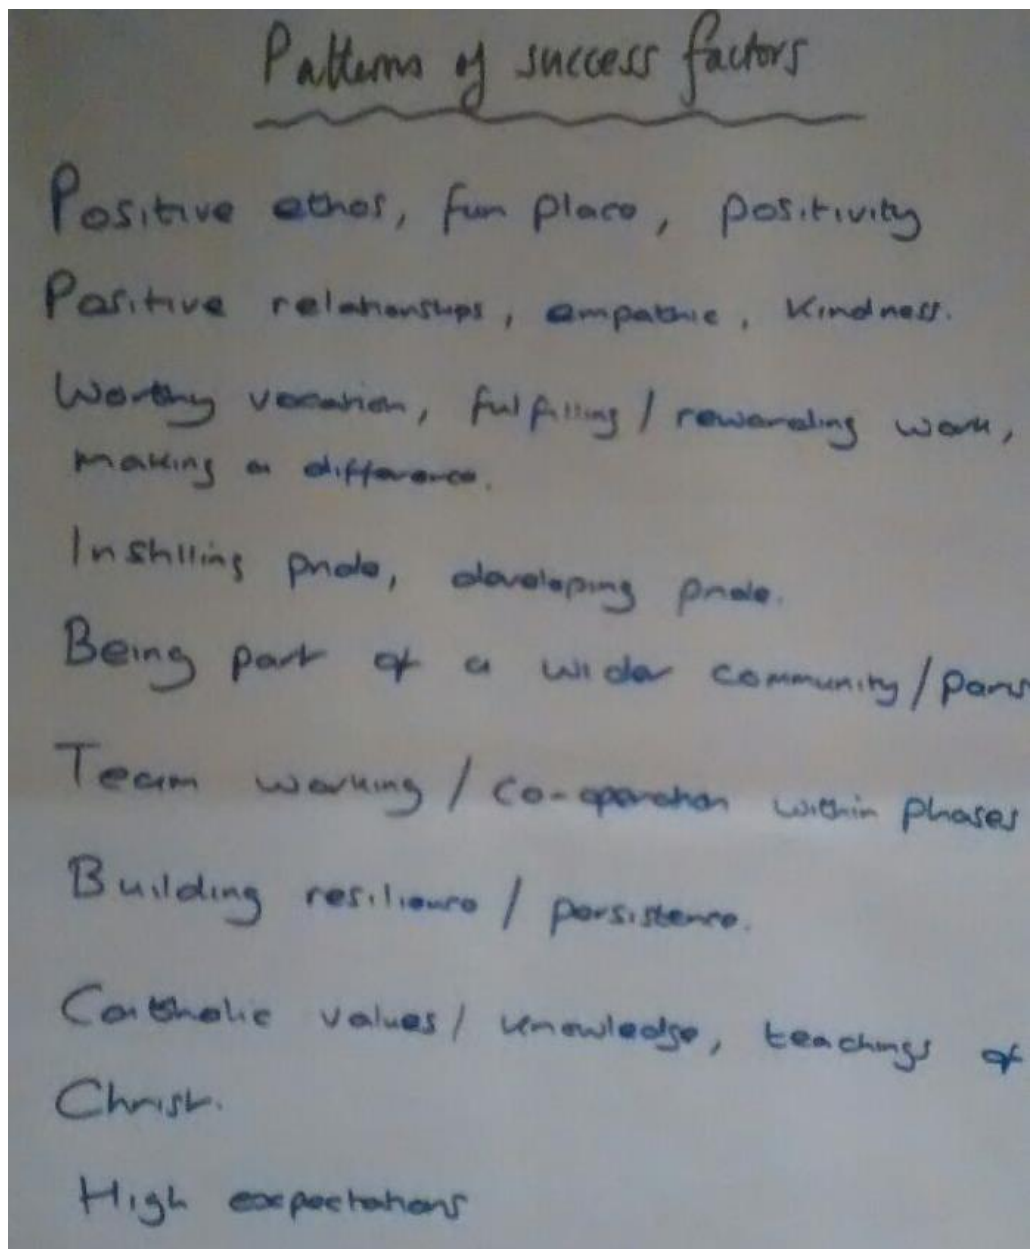 Patterns of success factors
Positive ethos, fun place, positivity
Positive relationships, empathic, kindness.
Worthy vocation, fulfilling / rewarding work,
making a difference.
Instilling pride, developing pride.
Being part of a wider community / paris
Team working / co-operation within phases
Building resilience / persistence.
Catholic values / knowledge, teachings of
Christ.
High expectations